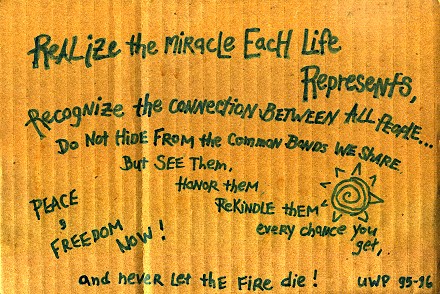 ReALize the MiRACLE EacH Life
RepResents,
Recognize the connection Between All People...
Do Not HiDE FROM the Common Bonds WE SHARE
But SEE Them,
HoNoR them
ReKiNDLE tHEM
every chance you
get,
PEACE
,
FREEDOM
NOW!
and never Let tHE FiRE die!
UWP 95-96